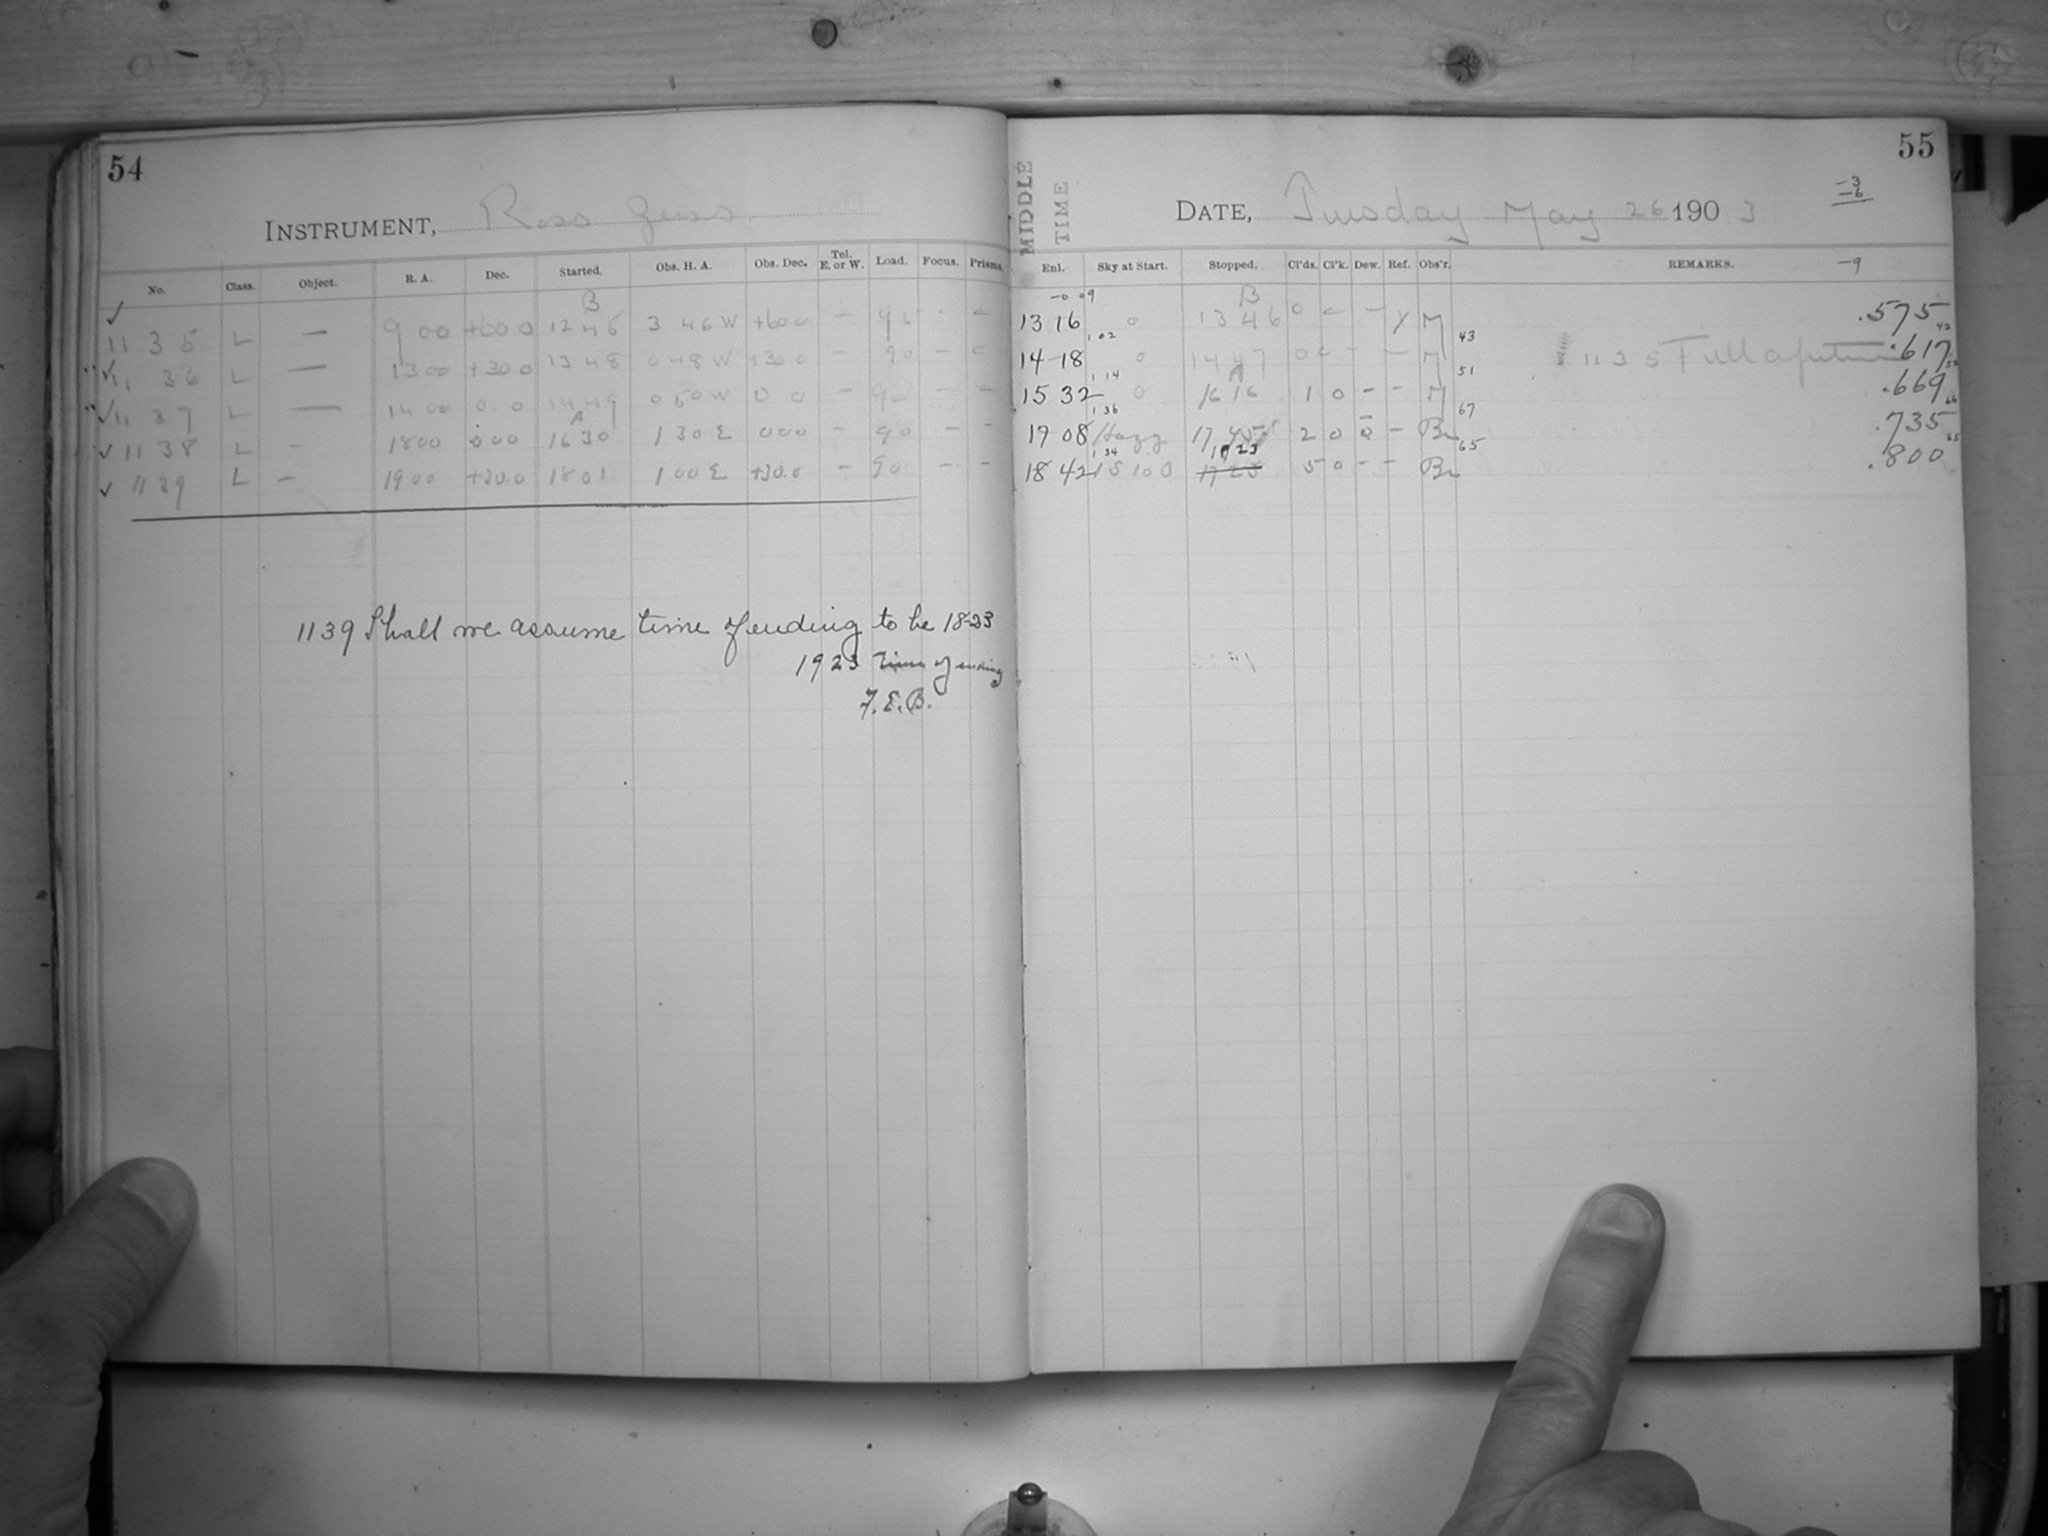 54
INSTRUMENT, Ross Zeiss
No. Class. Object. R. A. Dec. Started. Obs. H. A. Obs. Dec. Tel. E. or W. Load. Focus. Prisms.
B
✓ 1135 L — 9 00 +60 0 12 46 3 46 W +60 0 — 90 - -
" ✓ 11 36 L — 13 00 +30.0 13 48 0 48 W +30.0 — 90 — -
" ✓ 11 37 L — 14 00 0.0 14 49 0 50 W 0 0 — 90 — -
A
✓ 1138 L — 1800 000 1630 1 30 E 000 — 90 — -
✓ 1139 L — 1900 +30.0 1801 1 00 E +30.0 — 90 — -
1139 Shall we assume time of ending to be 18-23
1923 Time of ending
F.E.B.
55
MIDDLE TIME
DATE, Tuesday May 26 190 3
-3
-6
-9
Enl. Sky at Start. Stopped. Cl'ds. Cl'k. Dew. Ref. Obs'r. REMARKS.
-0 09 B
13 16 0 13 46 0 - — M .575
1 02 43 42
14-18 0 14 47 0 - — M 1135 Full aperture .617
1 14 A 51 52
15 32 0 16 16 1 0 — — M .669
1 36 67 66
17 08 Hazy 17 45 2 0 0 — Br .735
1 34 1923 65 65
18 42 15 100 17 23 5 0 - - Br .800